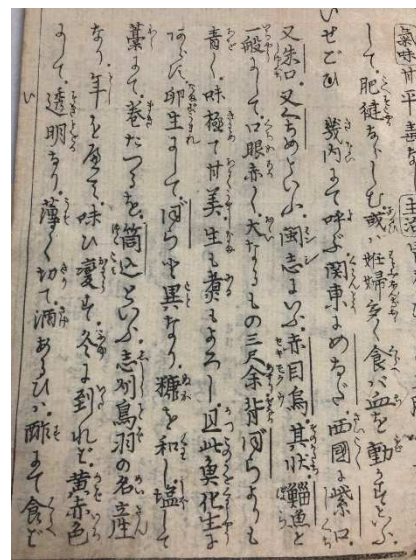 気味甘平毒なし 主治
して。肥健ならしむ。或ハ妊婦多く食ハ血を動かすといふ
いせごひ 畿内にて呼ぶ。関東にめなだ。西國に紫口。
又朱口。又くちめといふ。閩志にいふ。赤目烏。其状鯔魚と
一般にして。口眼赤く。大なるもの三尺余。背ぼらよりも
青く。味極て甘美。生も煮もよろし。且此奥化生に
あらた。卵生にてぼらと異なり。糠を和し。塩して
藁にて。巻たつるを。筒込といふ。志州鳥羽の名産
なり。年を歴て。味ひ変ず。冬に到れど。黄赤色
にて。透明なり。薄く切て。酒あるひハ。酢にて食ど
い